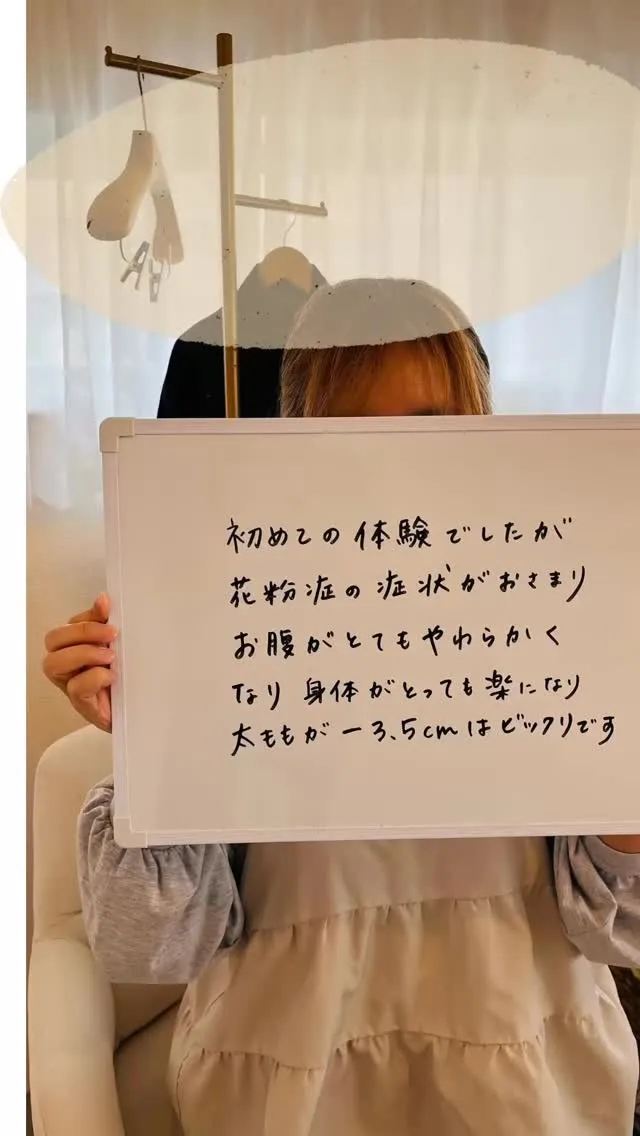 初めての体験でしたが
花粉症の症状がおさまり
お腹がとてもやわらかく
なり 身体がとっても楽になり
太ももがー3.5cmはビックリです